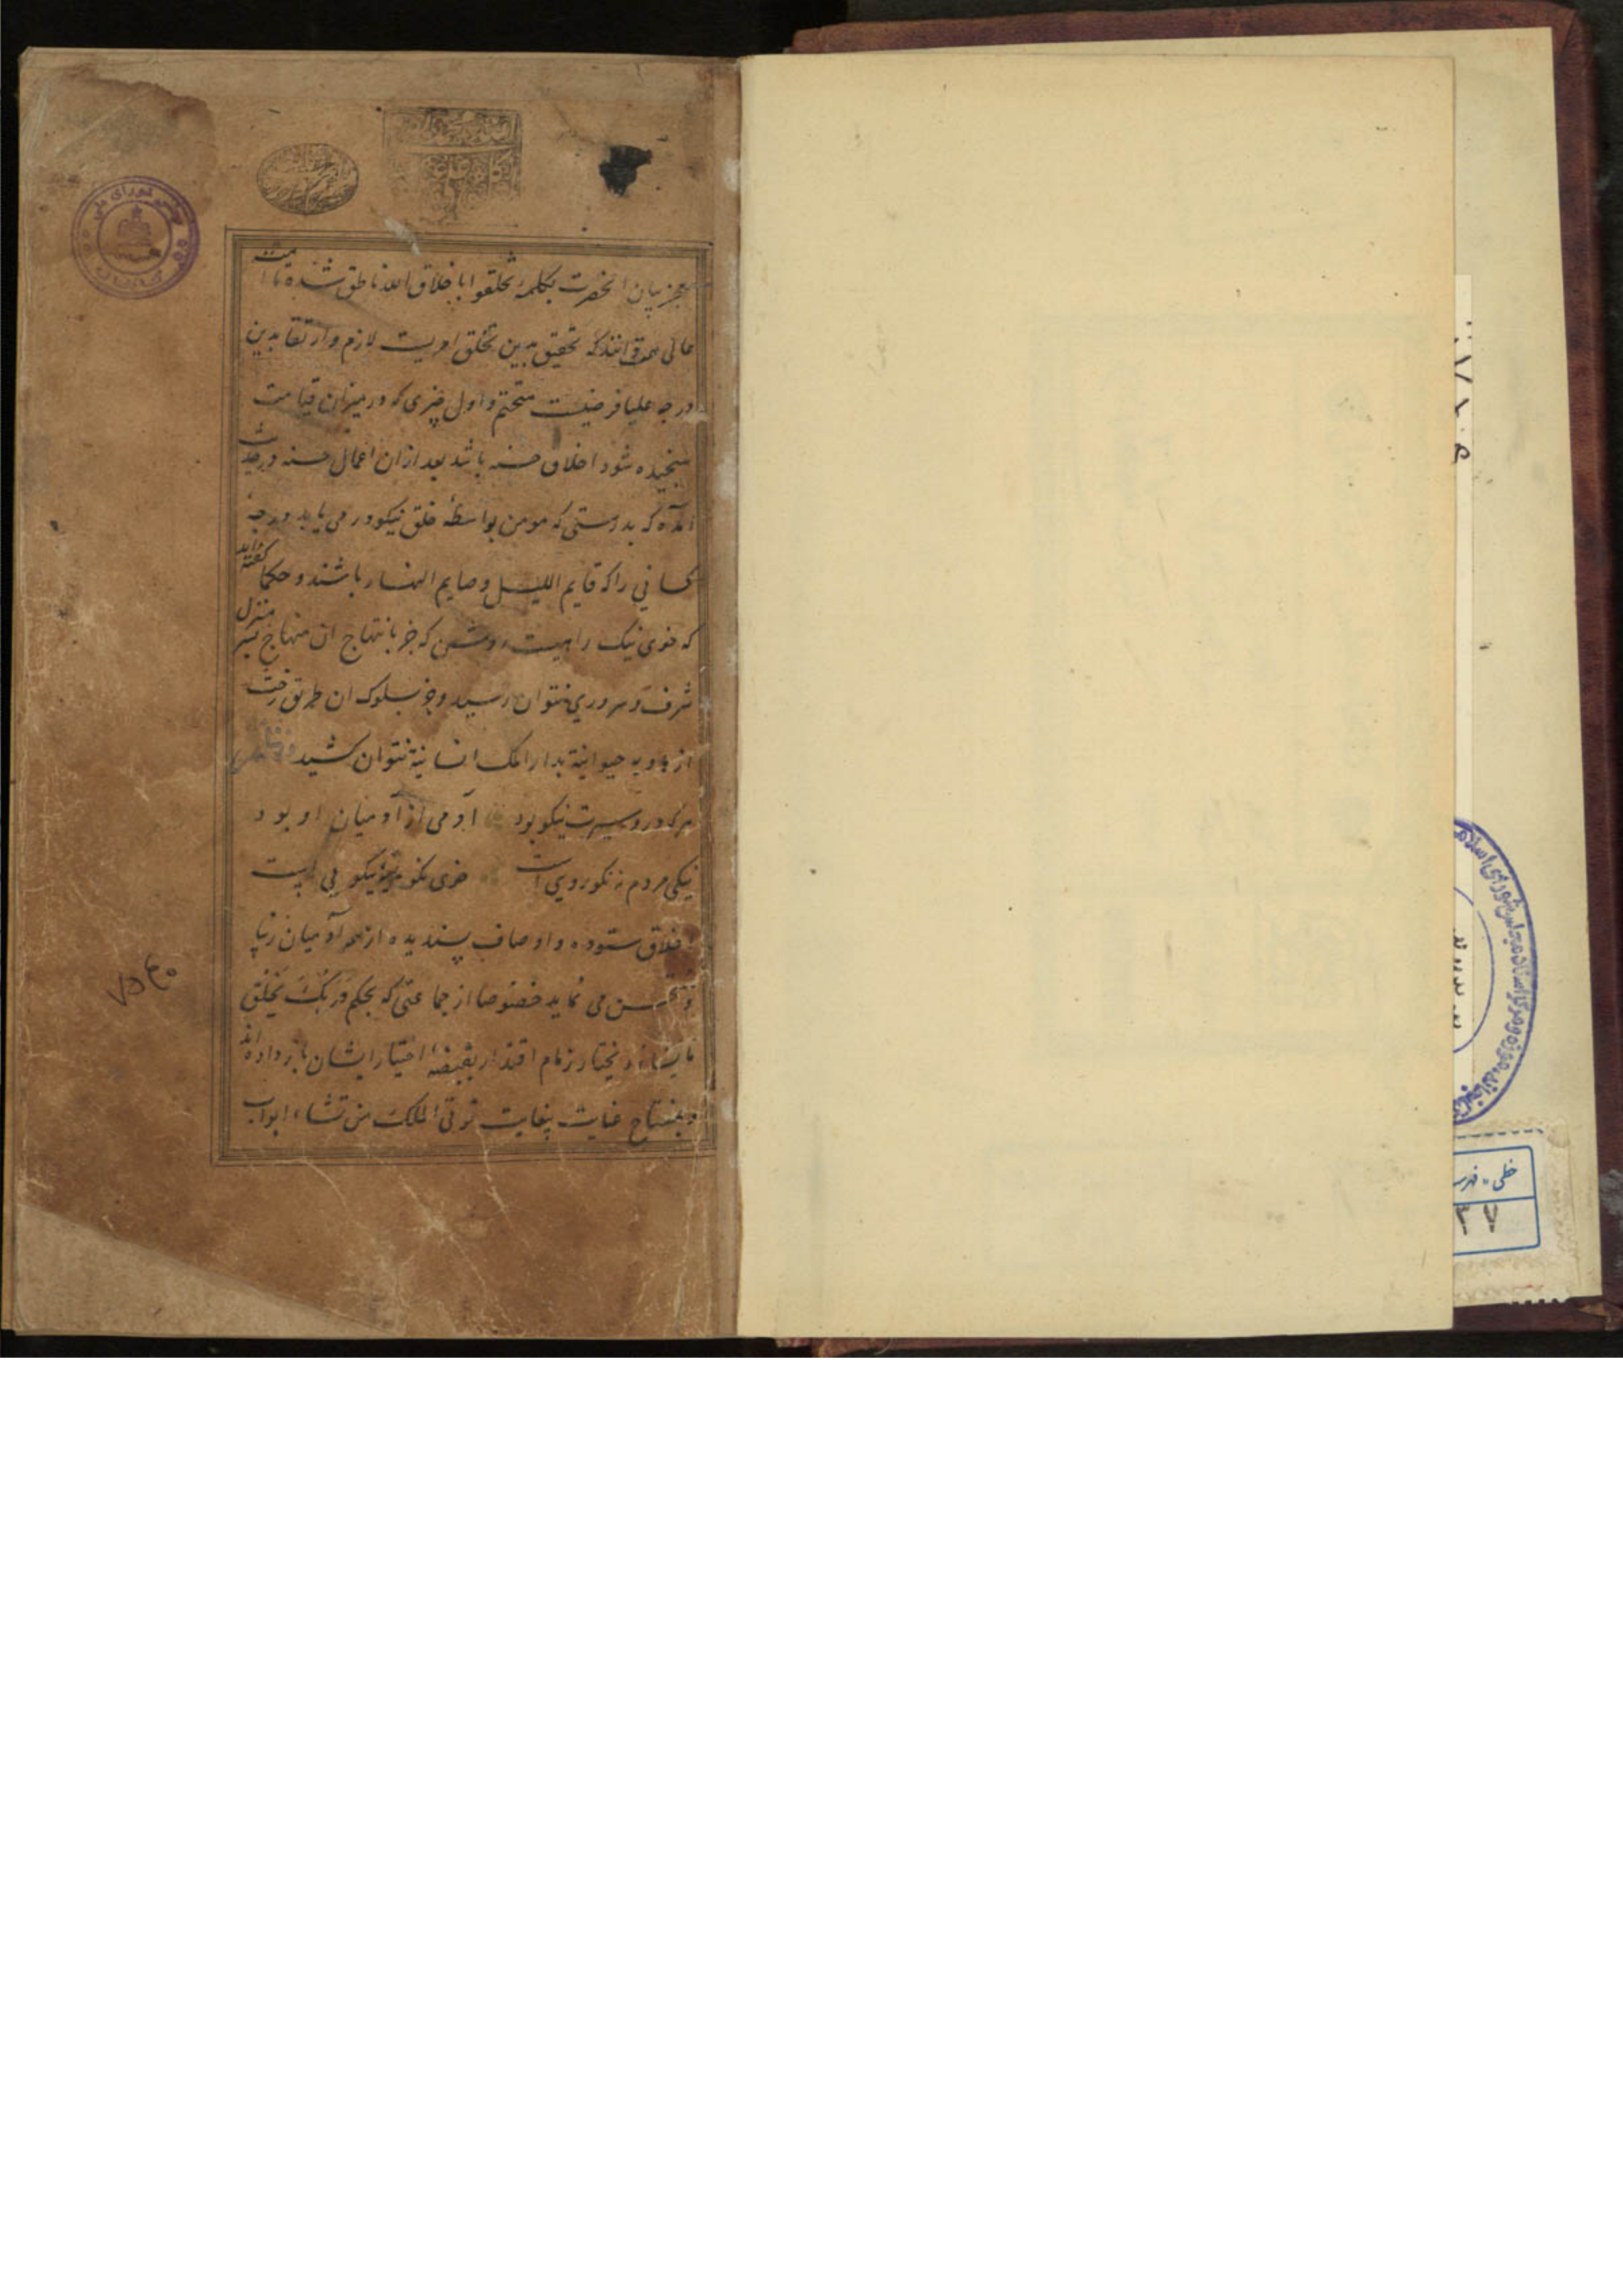 معجز بیان انحضرت بکلمه تخلقوا باخلاق الله ناطق شده تا امت
عالی همت دانند که تحقیق بدین تخلق امریست لازم و ارتقا بدین
درجه علیا فرضیست متحتم و اول چیزی که در میزان قیامت
سنجیده شود اخلاق حسنه باشد بعد از ان اعمال حسنه و در حدیث
آمده که بدرستی که مومن بواسطه خلق نیکو در می یابد درجه
کسانی را که قایم اللیل و صایم النهار باشند و حکما گفته اند
که خوی نیک راهیست روشن که جز بانتهاج ان منهاج بسر منزل
شرف و سروری نتوان رسید و جز بسلوک ان طریق رخت
از بادیه حیوانیة بدار الملک انسانیة نتوان کشید
هرکه درو سیرت نیکو بود آدمی از آدمیان او بود
نیکی مردم نه نکورویی است خوی نکو مایه نیکویی است
اخلاق ستوده و اوصاف پسندیده از همه آدمیان زیبا
و مستحسن می نماید خصوصا از جماعتی که بحکم وَرَبُّکَ یَخلُق
ما یشاء و یختار زمام اقتدار بقبضه اختیار ایشان باز داده اند
و بمفتاح عنایت بیغایت تؤتی الملک من تشاء ابواب
۷۵۴۰
مجلس شورای ملی
خطی - فهرست
۳۷